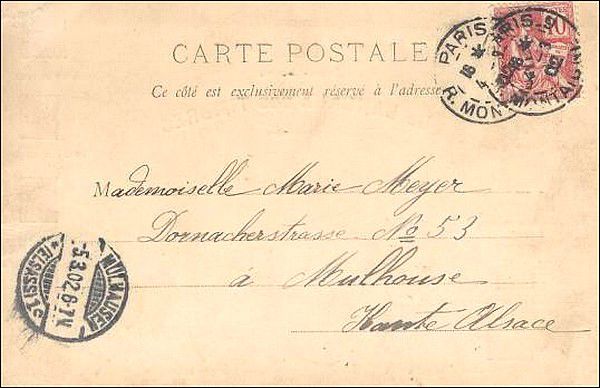 CARTE POSTALE
Ce côté est exclusivement réservé à l'adresse
PARIS
R. MON
PARIS
10
Mademoiselle Marie Meyer
Dornacherstrasse No 53
à Mulhouse
Haute Alsace
MÜLHAUSEN
5.3.02.6-7.V.
(ELSASS) C1